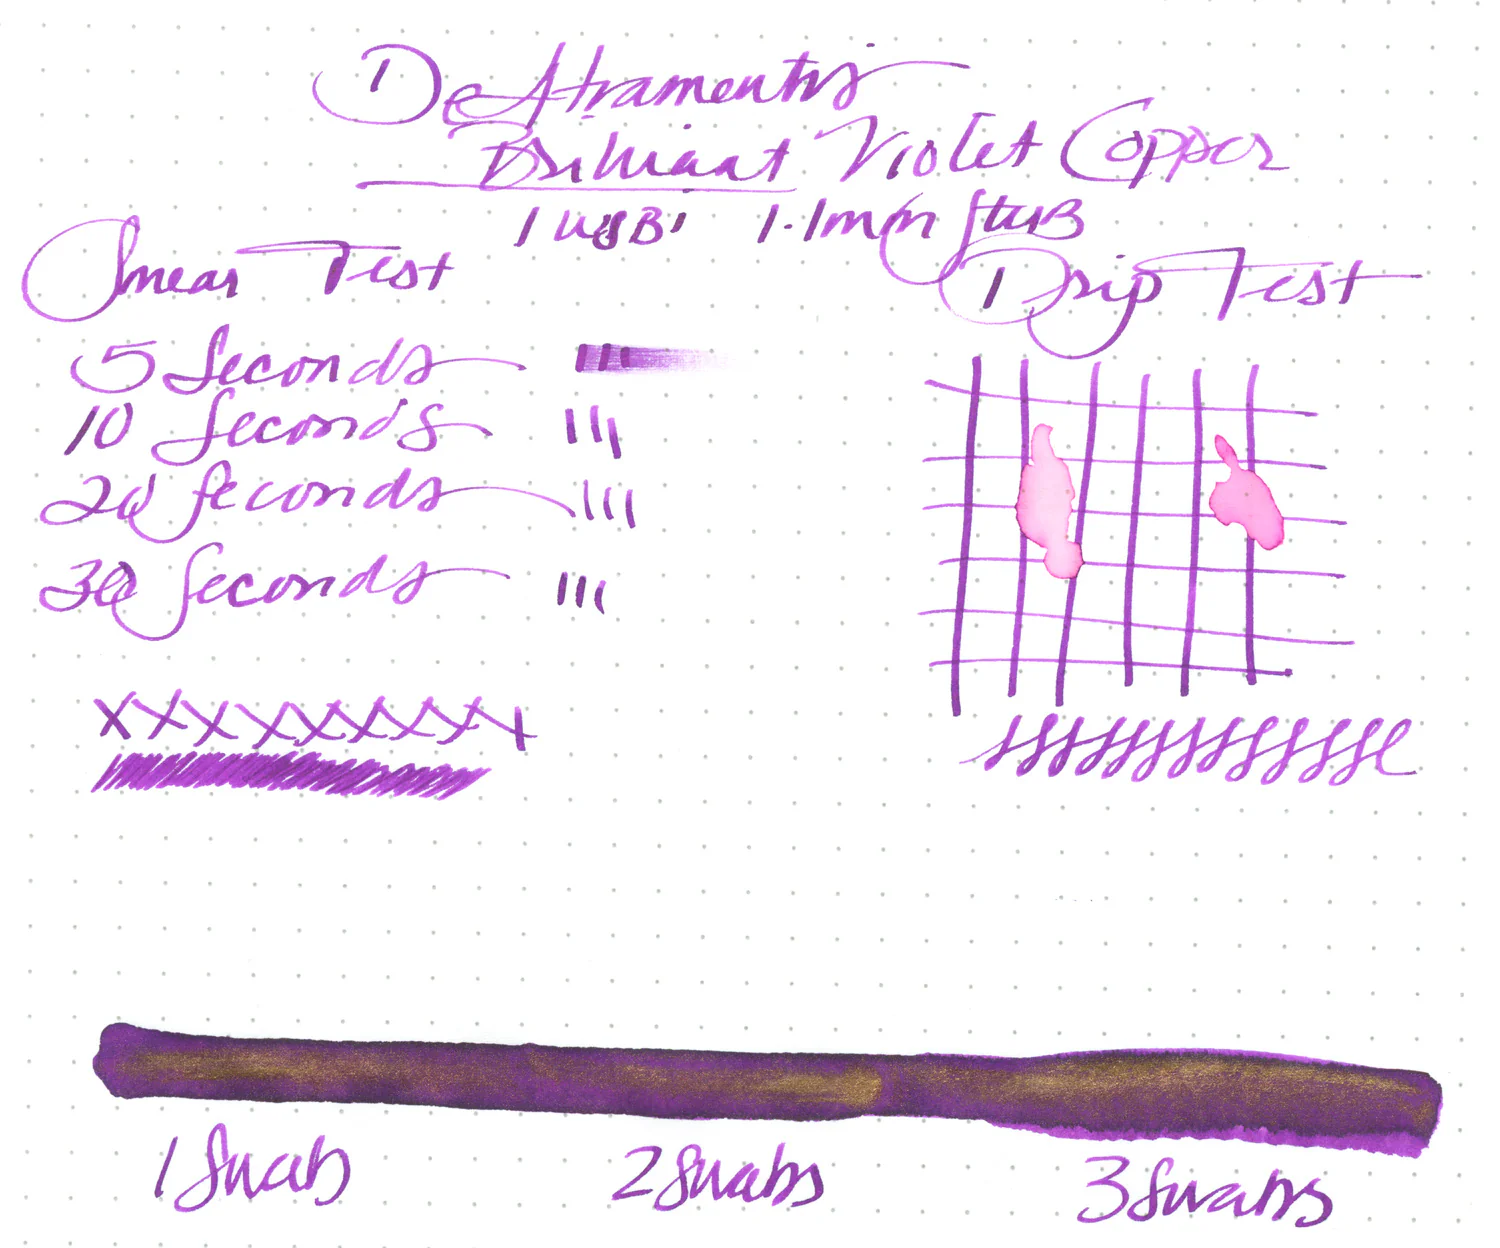 De Atramentis
Brilliant Violet Copper
TWSBI 1.1mm Stub
Smear Test
Drip Test
5 Seconds
10 Seconds
20 Seconds
30 Seconds
XXXXXXXXX
1 Swab
2 Swabs
3 Swabs